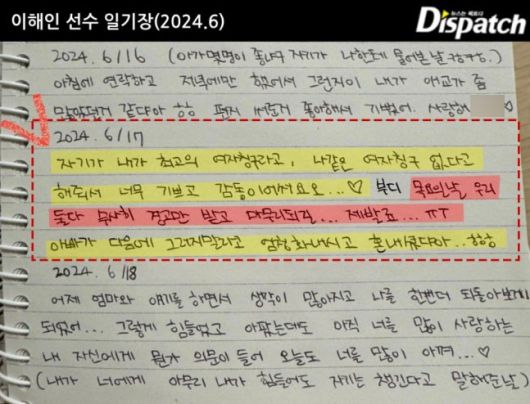 이해인 선수 일기장(2024.6)
뉴스는 팩트다
Dispatch
2024. 6/16 (아가몇명이 좋냐구 자기가 나한테 물어본날ㅎㅎ.)
아침에 연락하고 저녁에만 했어서 그런지 내가 애교가 좀
많았던거 같다아 ㅎㅎ 편지 써준거 좋아해서 기뻤어. 사랑해 ♡
2024. 6/17
자기가 내가 최고의 여자친구라고, 나같은 여자친구 없다고
해줘서 너무 기쁘고 감동이어써요오...♡ 부디 목요일날 우리
둘다 무사히 경고만 받고 마무리되길... 제발료...ㅠㅜ
아빠가 다음에 그러지말라고 엄청화내시고 혼내셨다아..ㅎㅎㅎ
2024. 6/18
어제 엄마와 얘기를 하면서 생각이 많아지고 나를 한번더 되돌아보게
되었어... 그렇게 힘들었고 아팠는데도 아직 너를 많이 사랑하는
내 자신에게 뭔가 의문이 들어 오늘도 너를 많이 아껴...♡
(내가 너에게 아무리 내가 힘들어도 자기는 챙긴다고 말해준날)